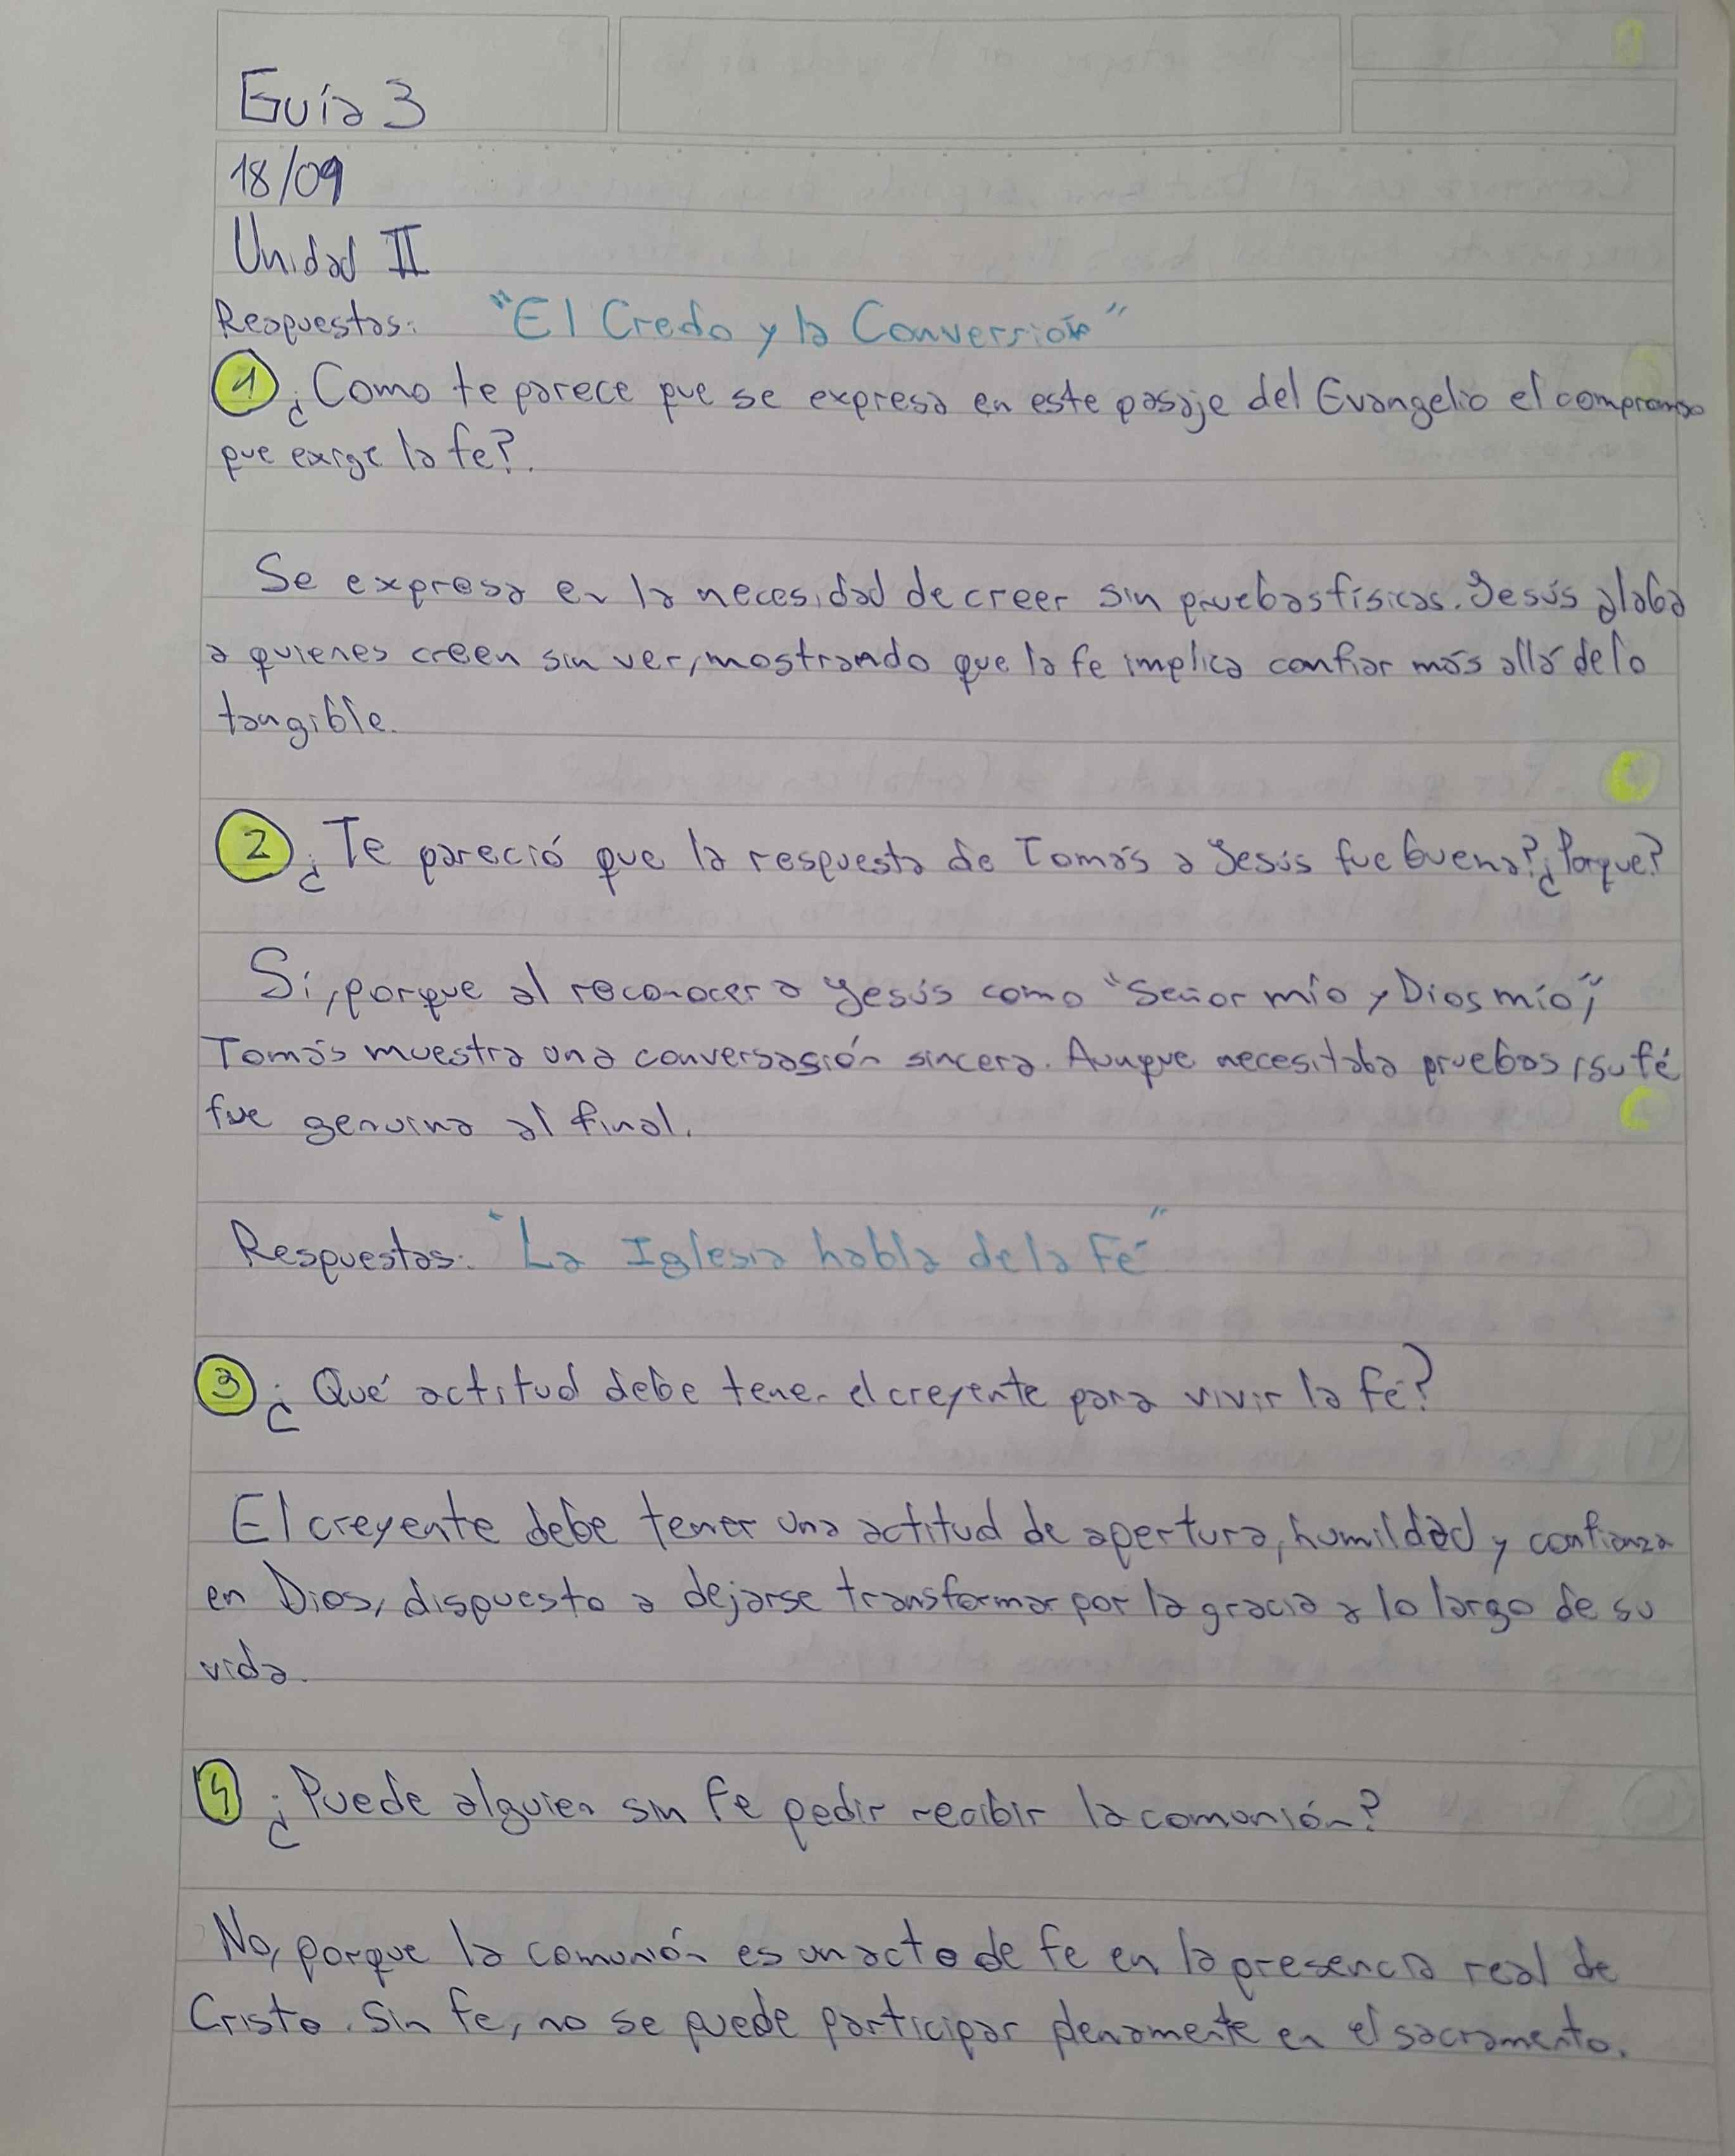 Guía 3
18/09
Unidad II
Respuestas: "El Credo y la Conversión"
1 ¿Como te parece que se expresa en este pasaje del Evangelio el compromiso
que exige la fe?.
Se expresa en la necesidad de creer sin pruebas físicas. Jesús alaba
a quienes creen sin ver, mostrando que la fe implica confiar más allá de lo
tangible.
2 ¿Te pareció que la respuesta de Tomás a Jesús fue buena? ¿Porque?
Sí, porque al reconocer a Jesús como "Señor mío y Dios mío",
Tomás muestra una conversasión sincera. Aunque necesitaba pruebas, su fé
fue genuina al final.
Respuestas: "La Iglesia habla de la Fé"
3 ¿Qué actitud debe tener el creyente para vivir la fé?
El creyente debe tener una actitud de apertura, humildad y confianza
en Dios, dispuesto a dejarse transformar por la gracia a lo largo de su
vida.
4 ¿Puede alguien sin fe pedir recibir la comunión?
No, porque la comunión es un acto de fe en la presencia real de
Cristo. Sin fe, no se puede participar plenamente en el sacramento.